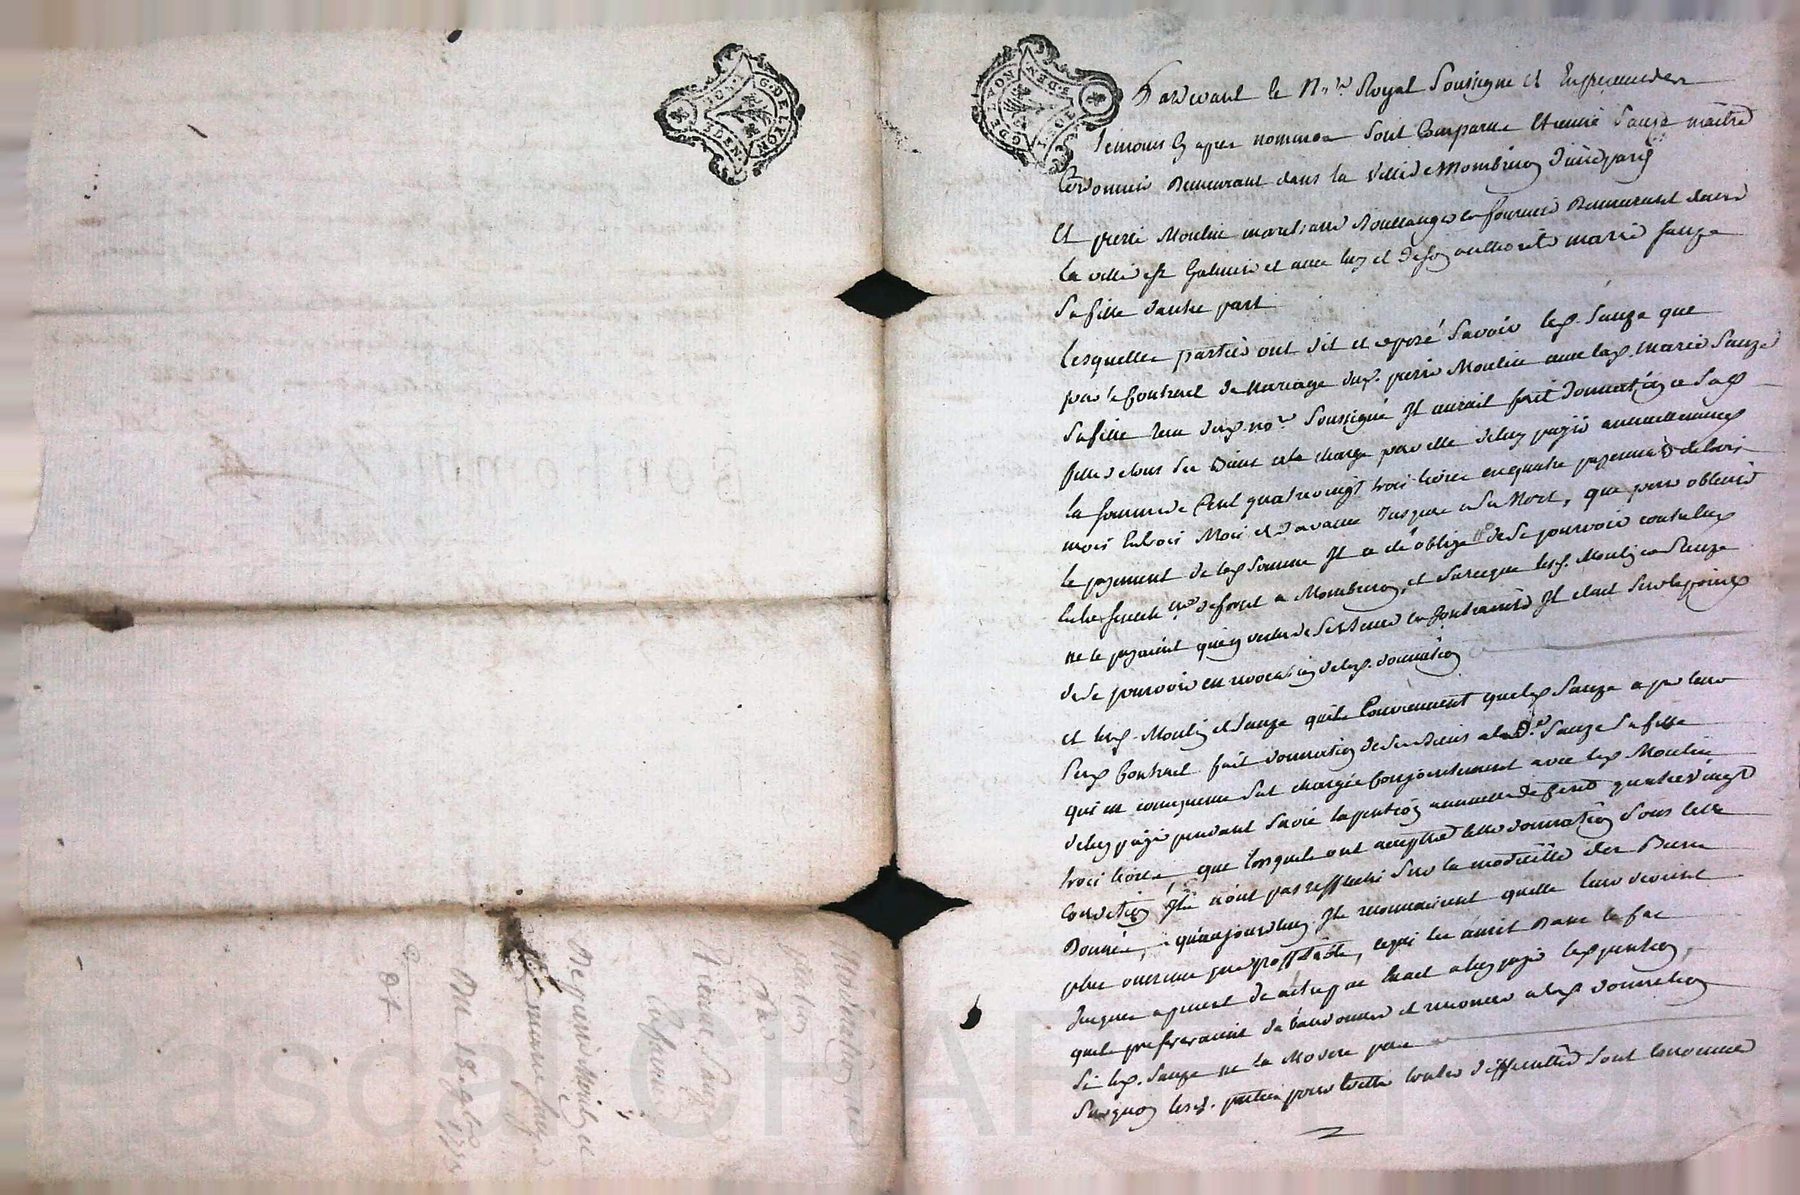 G. DE LYON
Pardevant le Nre Royal Soussigné Et En presence des
Temoins cy apres nommes sont Comparus Etienne Sauze maitre
Cordonnier Demeurant dans la ville de Mombrison d'une part
Et pierre Moulin marchand Boullanger demeurant dans
la ville st Galmier et avec luy et de son authorité marie Sauze
Sa fille d'autre part
Lesquelles parties ont dit et exposé Savoir led. Sauze que
par le Contract de Mariage dud. pierre Moulin avec lad. marie Sauze
Sa fille recu dud. nore Soussigné Il aurait fait donnation a Sad.
fille de tous Ses Biens a la charge par elle de luy payer annuellement
la somme de Cent quatrevingt trois livres en quatre payements de trois
mois en trois Mois et d'avance Jusques a Sa Mort, que pour obtenir
le payement de lad. Somme Il a été obligé de Se pourvoir contr'eux
de forest a Mombrison, et parceque lesd. Moulin et Sauze
ne le payaient qu'en vertu de Sentence Il etait Sur le point
de Se pourvoir en revocation de lad. donnation
et lesd. Moulin et Sauze qu'ils Conviennent que led. Sauze a par leur
Susd. Contract fait donnation de Ses Biens a la De. Sauze Sa fille
qui en consequence s'est chargée Conjointement avec led. Moulin
de luy payer pendant Sa vie la pention annuelle de Cent quatrevingt
trois livres, que lorsqu'ils ont accepté cette donnation Sous cette
Condition Ils n'ont pas refflechi Sur la modicitté des Biens
Donnés, qu'aujourdhuy Ils reconnaissent qu'elle leur devient
plus onereuse que proffitable, ce qui les a mis Dans le Cas
Jusques a present de n'etre pas Exact a luy payer lad. pention,
qu'ils prefereraient d'abandonner et renoncer a lad. donnation
Si led. Sauze ne la Modere pas
Surquoy lesd. parties pour Eviter toutes difficultés Sont convenues
Moderation de
pention
Par
Etienne Sauze
En faveur
De pierre Moulin et
marie Sauze
Du 18
Pascal CHAREYRON